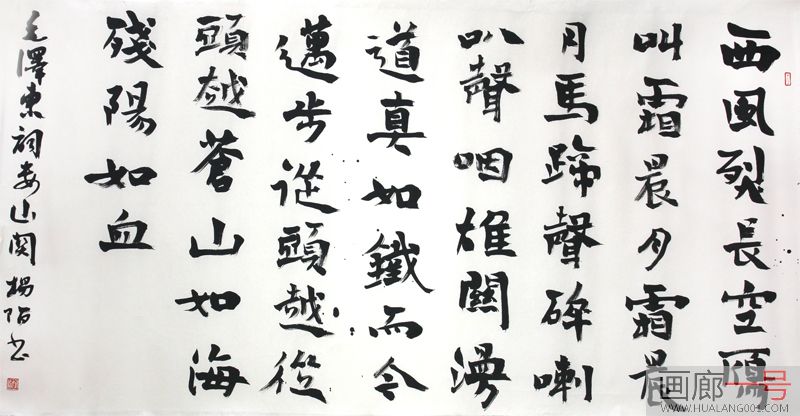 西風裂長空雁
叫霜晨月霜晨
月馬蹄聲碎喇
叭聲咽雄關漫
道真如鐵而今
邁步從頭越從
頭越蒼山如海
殘陽如血
毛澤東詞婁山関 楊陌书
画廊一号
WWW.HUALANG001.COM